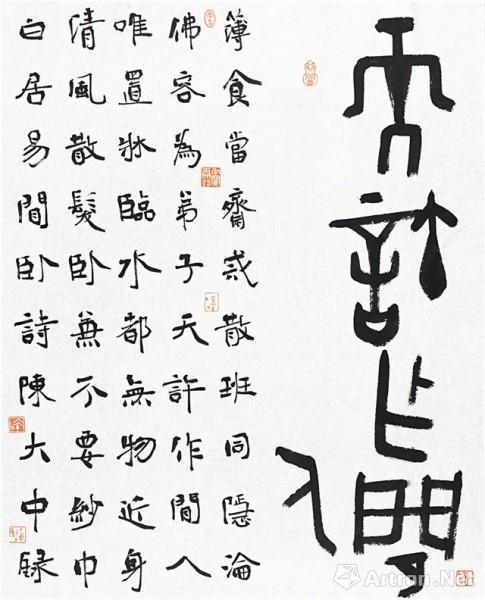 天許作閒人
薄食當齋戒散班同隱淪
佛容為弟子天許作閒人
唯置牀臨水都無物近身
清風散髮臥兼不要紗巾
白居易閒臥詩陳大中錄
Artron.Net